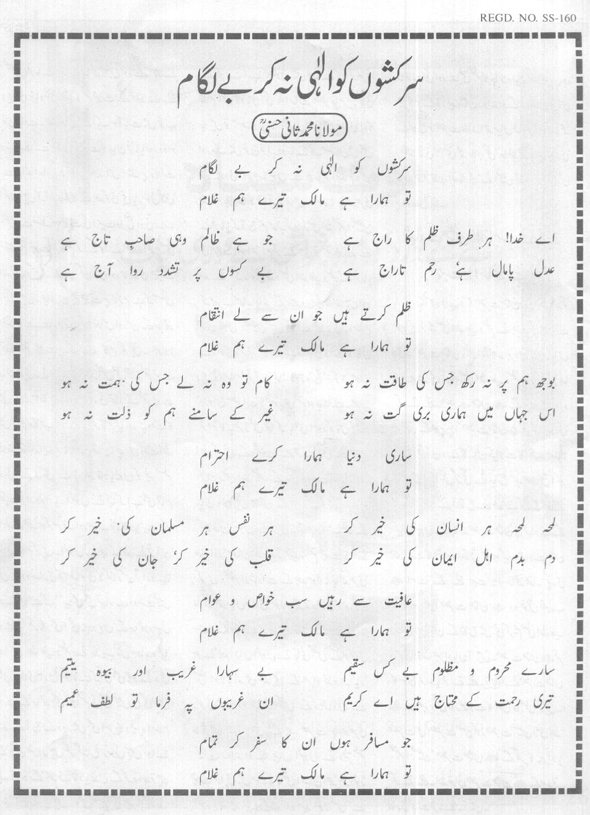 REGD. NO. SS-160
سرکشوں کو الٰہی نہ کر بے لگام
مولانا محمد ثانی حسنیؒ
سرکشوں کو الٰہی نہ کر بے لگام
تو ہمارا ہے مالک تیرے ہم غلام
اے خدا! ہر طرف ظلم کا راج ہے جو ہے ظالم وہی صاحب تاج ہے
عدل پامال ہے، رحم تاراج ہے بے کسوں پر تشدد روا آج ہے
ظلم کرتے ہیں جو ان سے لے انتقام
تو ہمارا ہے مالک تیرے ہم غلام
بوجھ ہم پر نہ رکھ جس کی طاقت نہ ہو کام تو وہ نہ لے جس کی ہمت نہ ہو
اس جہاں میں ہماری بری گت نہ ہو غیر کے سامنے ہم کو ذلت نہ ہو
ساری دنیا ہمارا کرے احترام
تو ہمارا ہے مالک تیرے ہم غلام
لمحہ لمحہ ہر انسان کی خیر کر ہر نفس ہر مسلمان کی خیر کر
دم بدم اہل ایمان کی خیر کر قلب کی خیر کر، جان کی خیر کر
عافیت سے رہیں سب خواص و عوام
تو ہمارا ہے مالک تیرے ہم غلام
سارے محروم و مظلوم بے کس سقیم بے سہارا غریب اور بیوہ یتیم
تیری رحمت کے محتاج ہیں اے کریم ان غریبوں پہ فرما تو لطف عمیم
جو مسافر ہوں ان کا سفر کر تمام
تو ہمارا ہے مالک تیرے ہم غلام